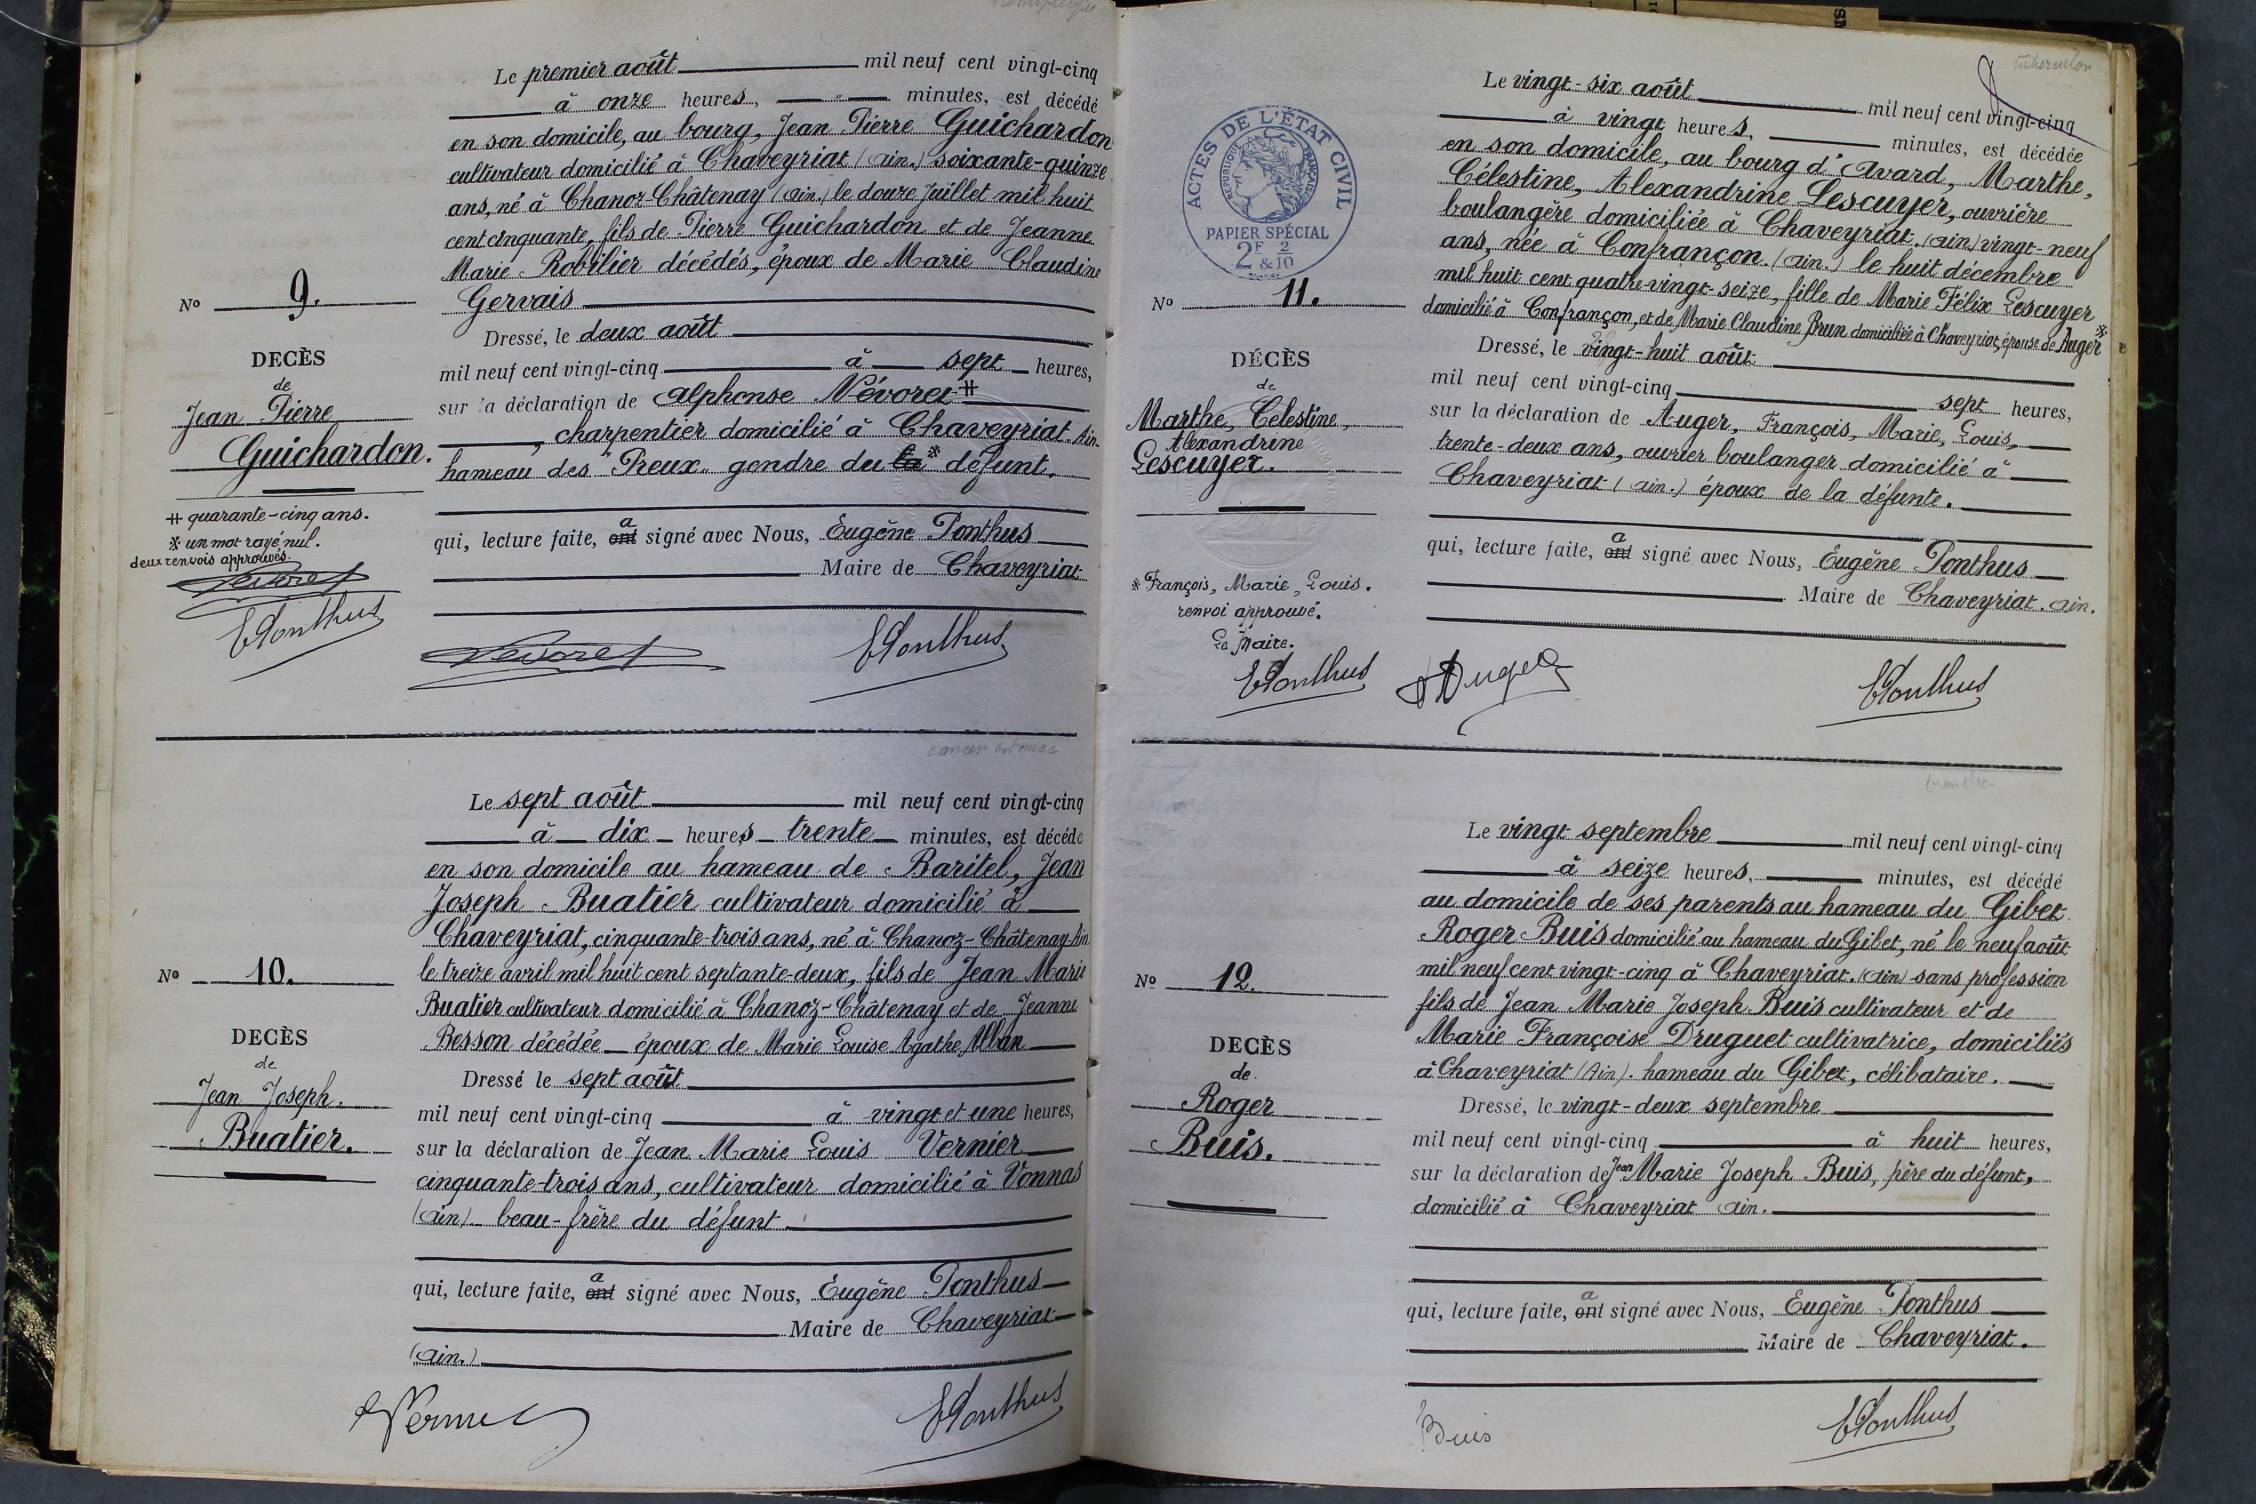 Le premier août mil neuf cent vingt-cinq
à onze heures, " minutes, est décédé
en son domicile, au bourg, Jean Pierre Guichardon
cultivateur domicilié à Chaveyriat (Ain.) soixante-quinze
ans, né à Chanoz-Châtenay (Ain.) le douze juillet mil huit
cent cinquante, fils de Pierre Guichardon et de Jeanne
Marie Robilier décédés, époux de Marie Claudine
Gervais
No 9.
DECÈS
de
Jean Pierre
Guichardon.
Dressé, le deux août
mil neuf cent vingt-cinq à sept heures,
sur la déclaration de Alphonse Névoret #
, charpentier domicilié à Chaveyriat Ain.
hameau des Preux gendre du la * défunt.
# quarante-cinq ans.
* un mot rayé nul.
deux renvois approuvés.
Nevoret
EPonthus
qui, lecture faite, ont a signé avec Nous, Eugène Ponthus
Maire de Chaveyriat
Nevoret EPonthus
cancer estomac
Le sept août mil neuf cent vingt-cinq
à dix heures trente minutes, est décédé
en son domicile au hameau de Baritel, Jean
Joseph Buatier cultivateur domicilié à
Chaveyriat, cinquante-trois ans, né à Chanoz-Châtenay Ain
le treize avril mil huit cent septante-deux, fils de Jean Marie
Buatier cultivateur domicilié à Chanoz-Châtenay et de Jeanne
Besson décédée époux de Marie Louise Agathe Alban
No 10.
DECÈS
de
Jean Joseph.
Buatier.
Dressé le sept août
mil neuf cent vingt-cinq à vingt et une heures,
sur la déclaration de Jean Marie Louis Vernier
cinquante-trois ans, cultivateur domicilié à Vonnas
(Ain) beau-frère du défunt
qui, lecture faite, ont a signé avec Nous, Eugène Ponthus
Maire de Chaveyriat
(Ain.)
EPonthus
ACTES DE L'ÉTAT CIVIL
RÉPUBLIQUE FRANÇAISE
PAPIER SPÉCIAL
2F 2
&10
tuberculose
Le vingt-six août mil neuf cent vingt-cinq
à vingt heures, minutes, est décédée
en son domicile, au bourg d'Avard, Marthe,
Célestine, Alexandrine Lescuyer, ouvrière
boulangère domiciliée à Chaveyriat. (Ain) vingt-neuf
ans, née à Confrançon. (Ain.) le huit décembre
mil huit cent quatre-vingt-seize, fille de Marie Félix Lescuyer
domicilié à Confrançon, et de Marie Claudine Brun domiciliée à Chaveyriat, épouse de Auger *
No 11.
DÉCÈS
de
Marthe, Célestine,
Alexandrine
Lescuyer.
Dressé, le vingt-huit août
mil neuf cent vingt-cinq sept heures,
sur la déclaration de Auger, François, Marie, Louis,
trente-deux ans, ouvrier boulanger domicilié à
Chaveyriat (Ain.) époux de la défunte.
qui, lecture faite, ont a signé avec Nous, Eugène Ponthus
Maire de Chaveyriat. Ain.
* François, Marie, Louis.
renvoi approuvé.
Le Maire.
EPonthus EPonthus
Le vingt septembre mil neuf cent vingt-cinq
à seize heures, minutes, est décédé
au domicile de ses parents au hameau du Gibet
Roger Buis domicilié au hameau du Gibet, né le neuf août
mil neuf cent vingt-cinq à Chaveyriat. (Ain) sans profession
fils de Jean Marie Joseph Buis cultivateur et de
Marie Françoise Druguet cultivatrice, domiciliés
à Chaveyriat (Ain). hameau du Gibet, célibataire.
No 12.
DECÈS
de
Roger
Buis.
Dressé, le vingt-deux septembre
mil neuf cent vingt-cinq à huit heures,
sur la déclaration de Jean Marie Joseph Buis, père du défunt,
domicilié à Chaveyriat Ain.
qui, lecture faite, ont a signé avec Nous, Eugène Ponthus
Maire de Chaveyriat.
Buis EPonthus